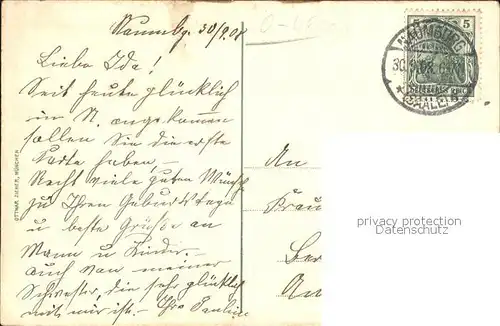 Naumbg. 30/9.08
Liebe Ida!
Seit heute glücklich
in N. angekommen
sollen Sie die erste
Karte haben, –
Recht viele guten Wünsche
zu Ihrem Geburtstage
u beste Grüße an
Mann u Kinder. –
auch von meiner
Schwester, die sehr glücklich
mit mir ist. – Ihre Pauline
OTTMAR ZIEHER, MÜNCHEN
5 5
NAUMBURG
30. 9. 08
* (SAALE)
DEUTSCHES REICH
An
Frau
privacy protection
Datenschutz
Ber
An